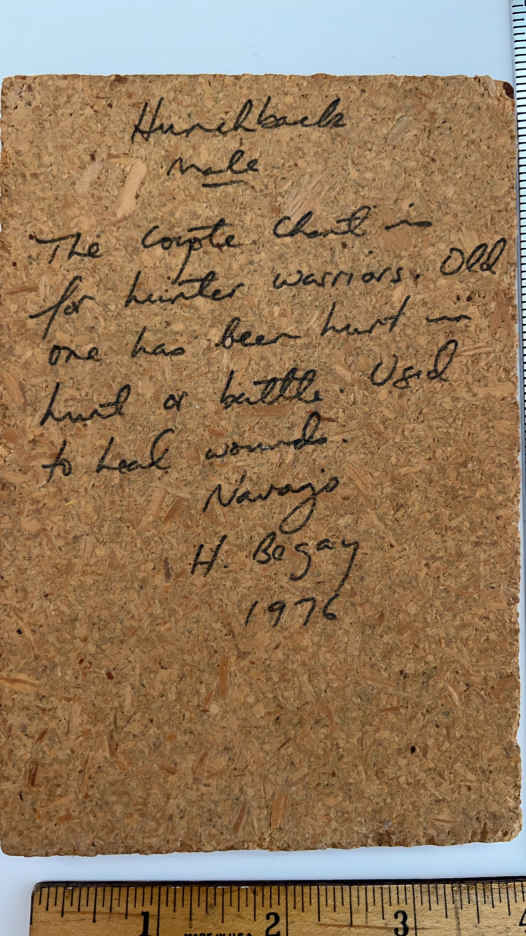 Hunchback
Male
The Coyote Chant is
for hunter warriors. Old
one has been hurt in
hunt or battle. Used
to heal wounds.
Navajo
H. Begay
1976
1 2 3 4
MADE IN U.S.A.